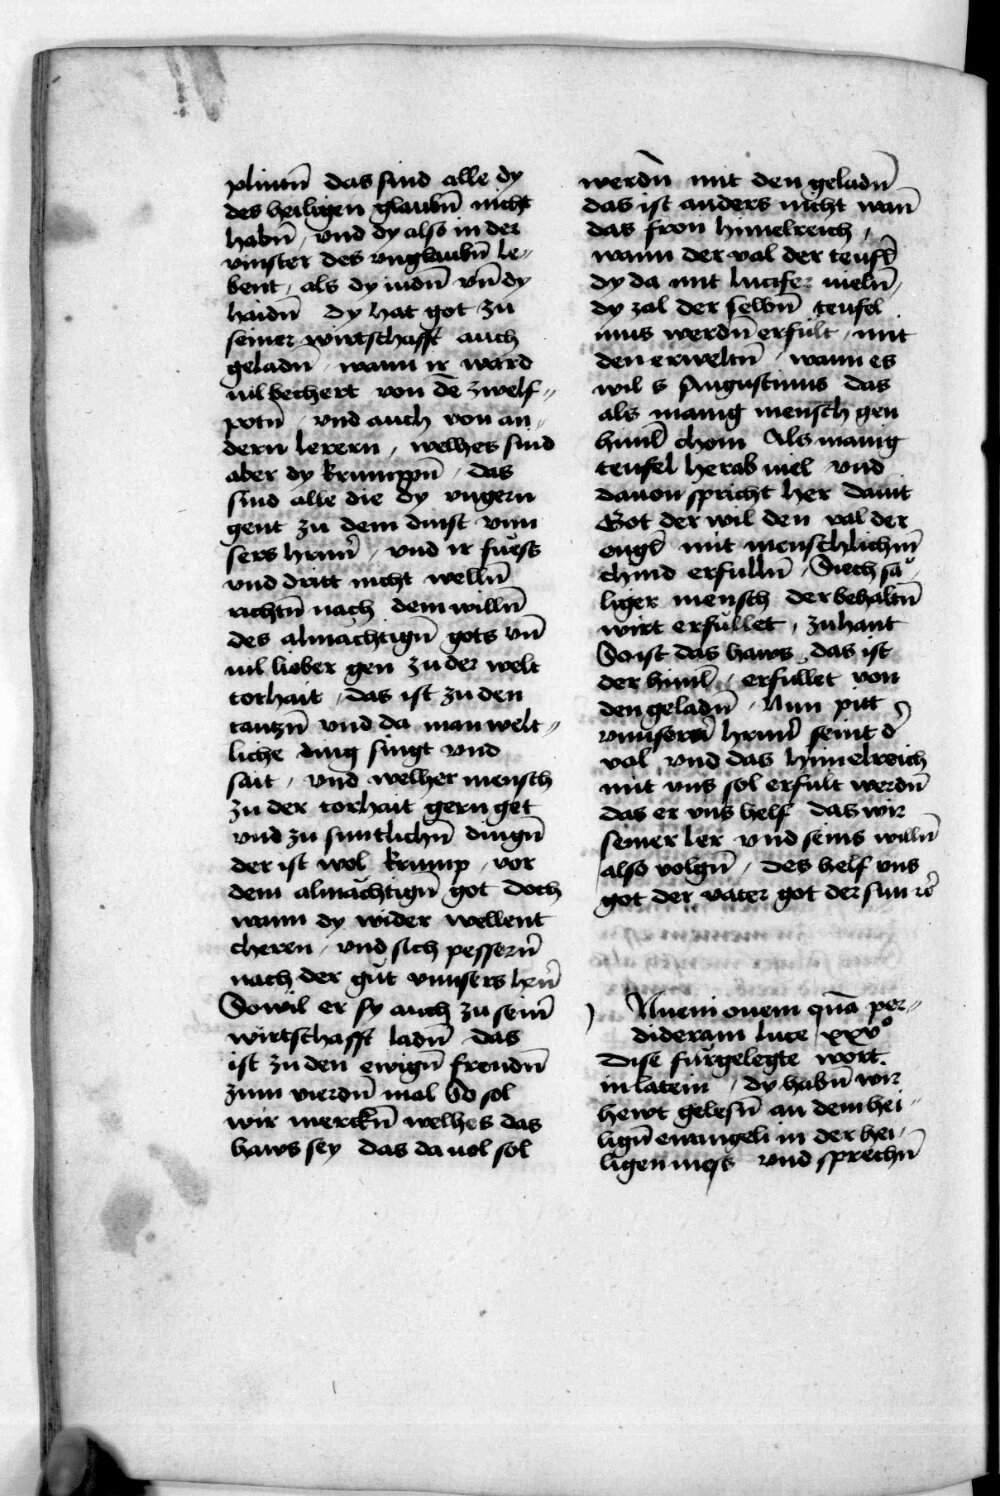 plintñ das sind alle dy
des heiligen glaubñ nicht
habñ / vnd dy also in der
vinster des vnglaubñ le〃
bent / als dy iudñ vñ dy
haidñ dy hat got zu
seiner wirtschafft auch
geladñ / wann ir ward
uil bechert von dē zwelf〃
potñ / vnd auch von an〃
dern lerern / welhes sind
aber dy krumppñ / das
sind alle die dy vngern
gent zu dem dinst vnn
sers hrnñ / vnd ir fuess
vnd dritt nicht wellñ
richtñ nach dem willñ
des almächtigñ gots vñ
uil lieber gen zu der welt
torhait / das ist zu den
tantzñ vnd da man welt〃
liche ding singt vnd
sait / vnd welher mensch
zu der torhait gern get
vnd zu suntlichñ dingñ
der ist wol krump / vor
dem almächtigñ got doch
wann dy wider wellent
cheren / vnd sich pessern̄
nach der güt vnnsers hrñ
So wil er sy auch zu seinē
wirtschafft ladñ das
ist zu den ewigñ frewdñ
zum vierdñ mal So sol
wir merckñ welhes das
haws sey das da uol sol
werdñ mit den geladñ
das ist anders nicht wañ
das fron himelreich /
wann der val der teufl̄
dy da mit lucifer uielñ /
dy zal der selbñ teufel
mus werdñ erfült / mit
den erweltñ / wann es
wil s Augustinus das
als manig mensch gen
himl̄ chom Als manig
teufel herab uiel vnd
dauon spricht her dauit
Got der wil den val der
engl̄ mit menschlichm̄
chind erfullñ / Siech sä
liger mensch der behaltñ
wirt erfüllet / zuhant
So ist das haws das ist
der himl̄ / erfüllet von
den geladñ / Nun pitt
vnnserñ hrnñ seint d̄
val vnd das himelreich
mit vns sol erfült werdñ
das er vns helf das wir
seiner ler vnd seins willñ
also volgñ / des helf vns
got der vater got der sun rc̄
Nueni ouem quā per〃
dideram luce xxv°
Dise fürgelegte wort
in latein / dy habñ wir
hewt gelesñ an dem hei〃
ligñ ewangeli in der hei〃
ligen mess vnd sprechñ